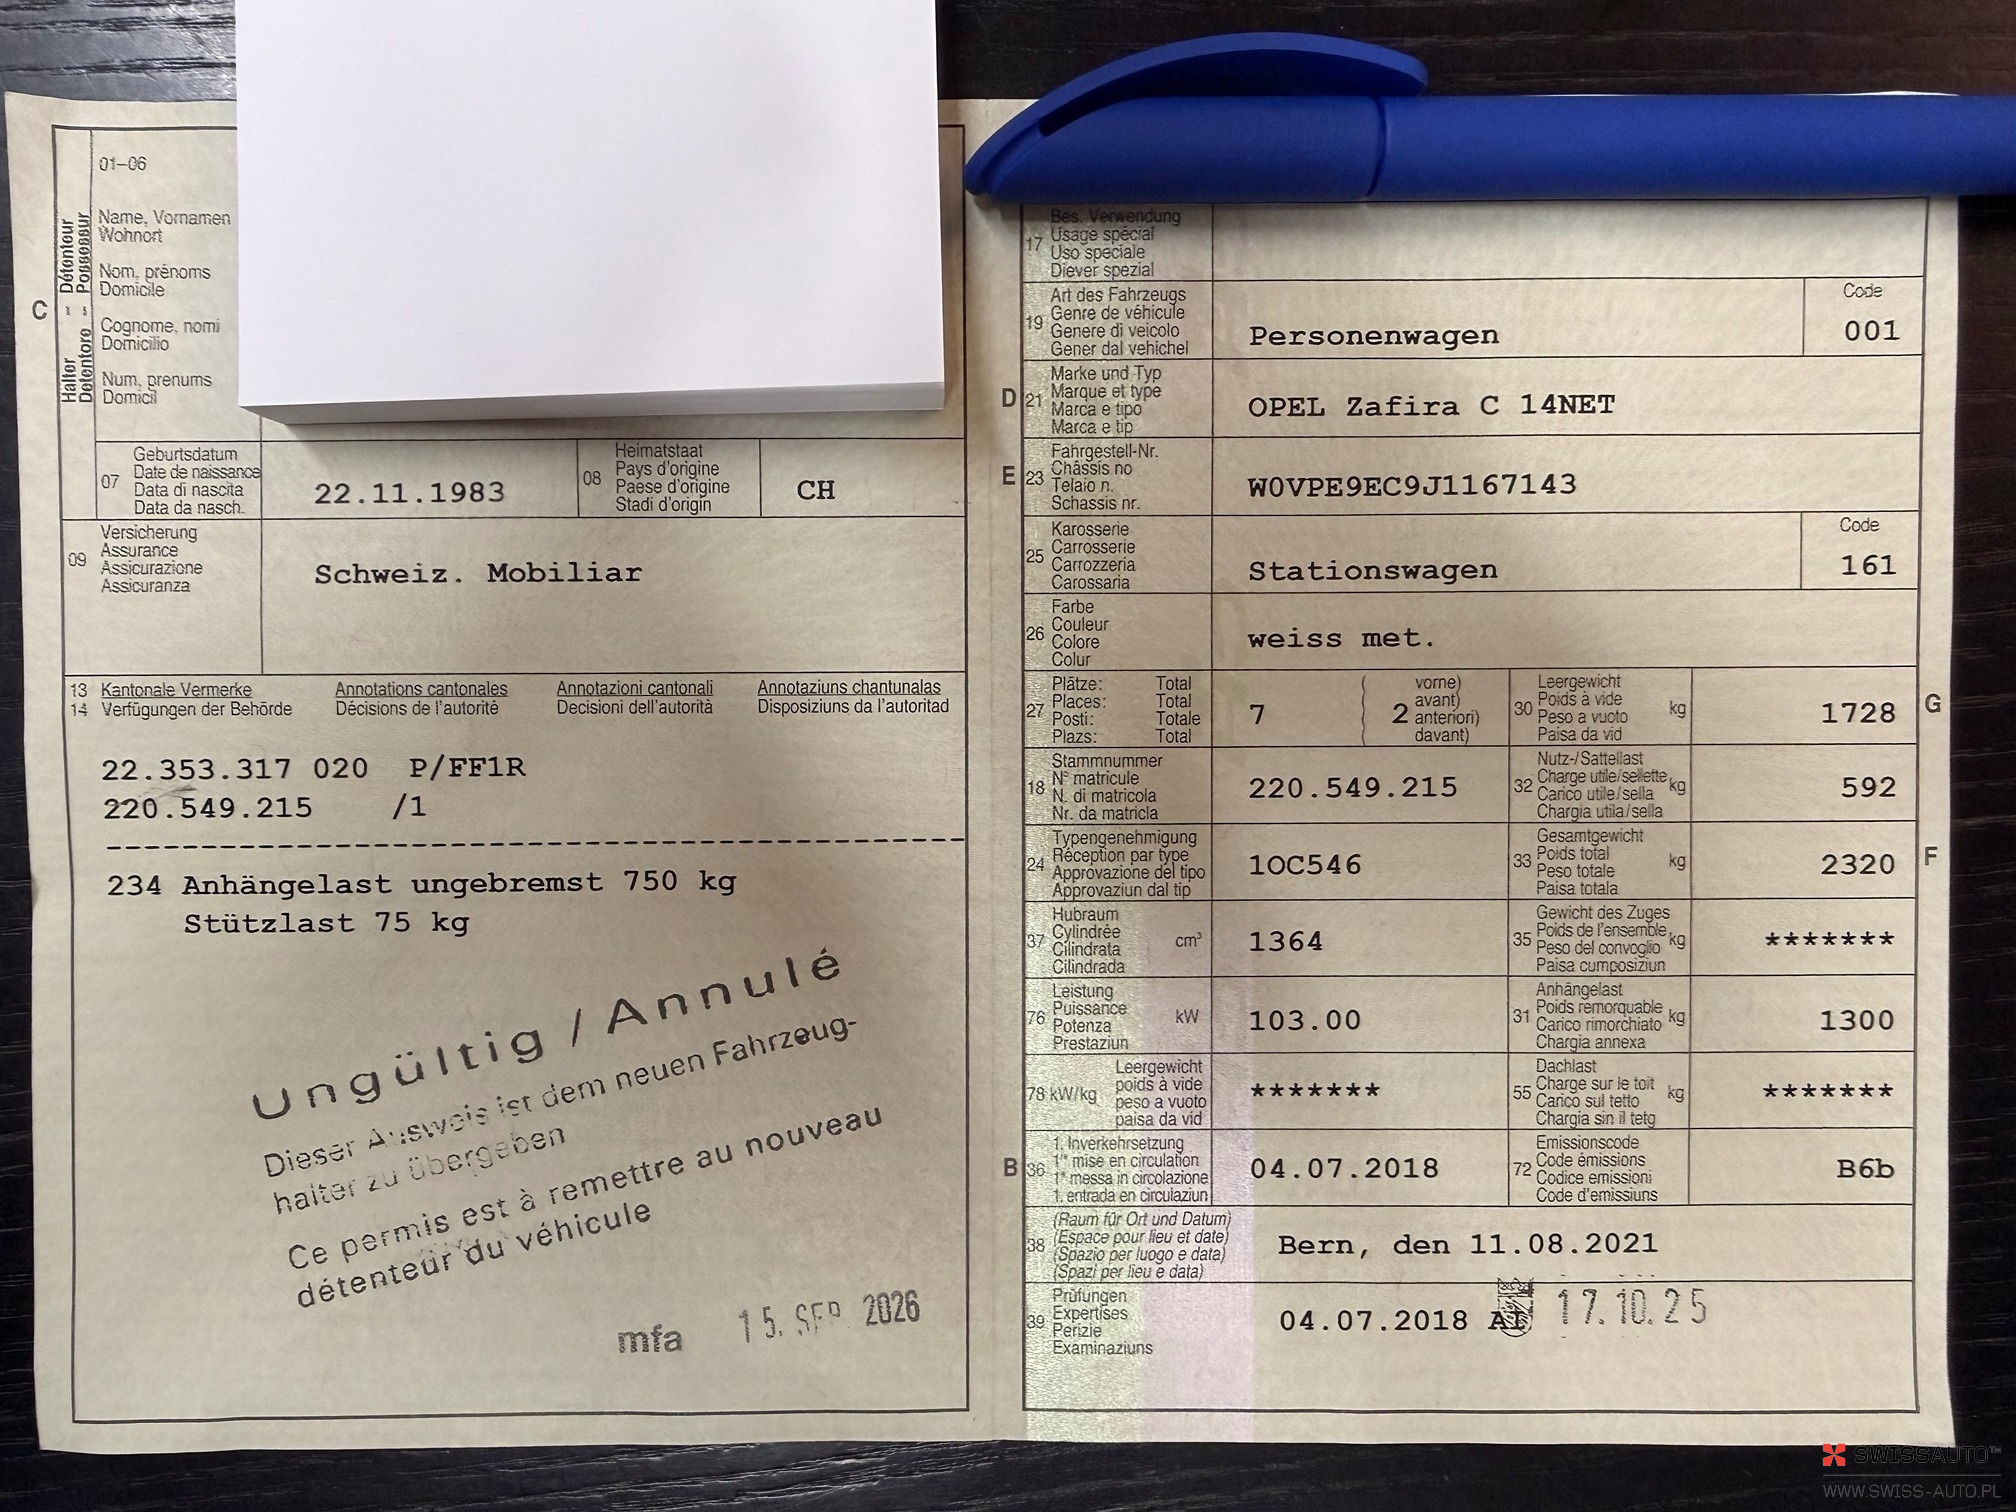 01–06
Halter - Détenteur
Detentore - Possessur
C
Name, Vornamen
Wohnort
Nom, prénoms
Domicile
Cognome, nomi
Domicilio
Num, prenums
Domicil
07
Geburtsdatum
Date de naissance
Data di nascita
Data da nasch.
22.11.1983
08
Heimatstaat
Pays d'origine
Paese d'origine
Stadi d'origin
CH
09
Versicherung
Assurance
Assicurazione
Assicuranza
Schweiz. Mobiliar
13 Kantonale Vermerke Annotations cantonales Annotazioni cantonali Annotaziuns chantunalas
14 Verfügungen der Behörde Décisions de l'autorité Decisioni dell'autorità Disposiziuns da l'autoritad
22.353.317 020 P/FF1R
220.549.215 /1
234 Anhängelast ungebremst 750 kg
Stützlast 75 kg
Ungültig / Annulé
Dieser Ausweis ist dem neuen Fahrzeug-
halter zu übergeben
Ce permis est à remettre au nouveau
détenteur du véhicule
mfa 15. SEP. 2026
17
Bes. Verwendung
Usage spécial
Uso speciale
Diever spezial
19
Art des Fahrzeugs
Genre de véhicule
Genere di veicolo
Gener dal vehichel
Personenwagen
Code
001
D 21
Marke und Typ
Marque et type
Marca e tipo
Marca e tip
OPEL Zafira C 14NET
E 23
Fahrgestell-Nr.
Châssis no
Telaio n.
Schassis nr.
W0VPE9EC9J1167143
25
Karosserie
Carrosserie
Carrozzeria
Carossaria
Stationswagen
Code
161
26
Farbe
Couleur
Colore
Colur
weiss met.
27
Plätze: Total
Places: Total
Posti: Totale
Plazs: Total
7
( vorne)
( avant)
( 2 anteriori)
( davant)
30
Leergewicht
Poids à vide
Peso a vuoto
Paisa da vid
kg
1728
G
18
Stammnummer
N° matricule
N. di matricola
Nr. da matricla
220.549.215
32
Nutz-/Sattellast
Charge utile/sellette
Carico utile/sella
Chargia utila/sella
kg
592
24
Typengenehmigung
Réception par type
Approvazione del tipo
Approvaziun dal tip
1OC546
33
Gesamtgewicht
Poids total
Peso totale
Paisa totala
kg
2320
F
37
Hubraum
Cylindrée
Cilindrata
Cilindrada
cm³
1364
35
Gewicht des Zuges
Poids de l'ensemble
Peso del convoglio
Paisa cumposiziun
kg
*******
76
Leistung
Puissance
Potenza
Prestaziun
kW
103.00
31
Anhängelast
Poids remorquable
Carico rimorchiato
Chargia annexa
kg
1300
78 kW/kg
Leergewicht
poids à vide
peso a vuoto
paisa da vid
*******
55
Dachlast
Charge sur le toit
Carico sul tetto
Chargia sin il tetg
kg
*******
B 36
1. Inverkehrsetzung
1re mise en circulation
1a messa in circolazione
1. entrada en circulaziun
04.07.2018
72
Emissionscode
Code émissions
Codice emissioni
Code d'emissiuns
B6b
38
(Raum für Ort und Datum)
(Espace pour lieu et date)
(Spazio per luogo e data)
(Spazi per lieu e data)
Bern, den 11.08.2021
39
Prüfungen
Expertises
Perizie
Examinaziuns
04.07.2018 17.10.25
SWISSAUTO™
WWW.SWISS-AUTO.PL